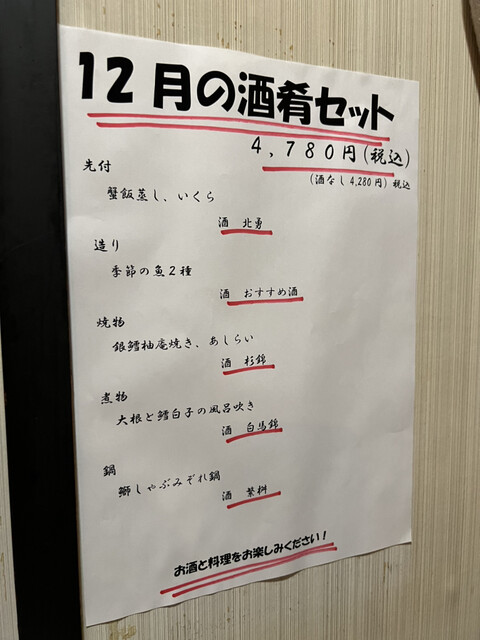 12月の酒肴セット
4,780円(税込)
(酒なし4,280円) 税込
先付
蟹飯蒸し、いくら
酒 北勇
造り
季節の魚2種
酒 おすすめ酒
焼物
銀鱈柚庵焼き、あしらい
酒 杉錦
煮物
大根と鱈白子の風呂吹き
酒 白馬錦
鍋
鰤しゃぶみぞれ鍋
酒 繁桝
お酒と料理をお楽しみください!